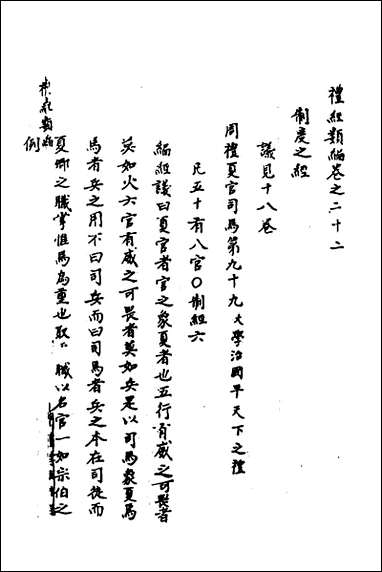 禮經類編卷之二十二
制度之經
議見十八卷
周禮夏官司馬第九十九大學治國平天下之禮
凡五十有八官〇制經六
編經議曰夏官者官之象夏者也五行有威之可畏者
莫如火六官有威之可畏者莫如兵是以司馬象夏焉
馬者兵之用不曰司兵而曰司馬者兵之本在司徒而
夏卿之職掌惟馬為重也取以職以名官一如宗伯之
例